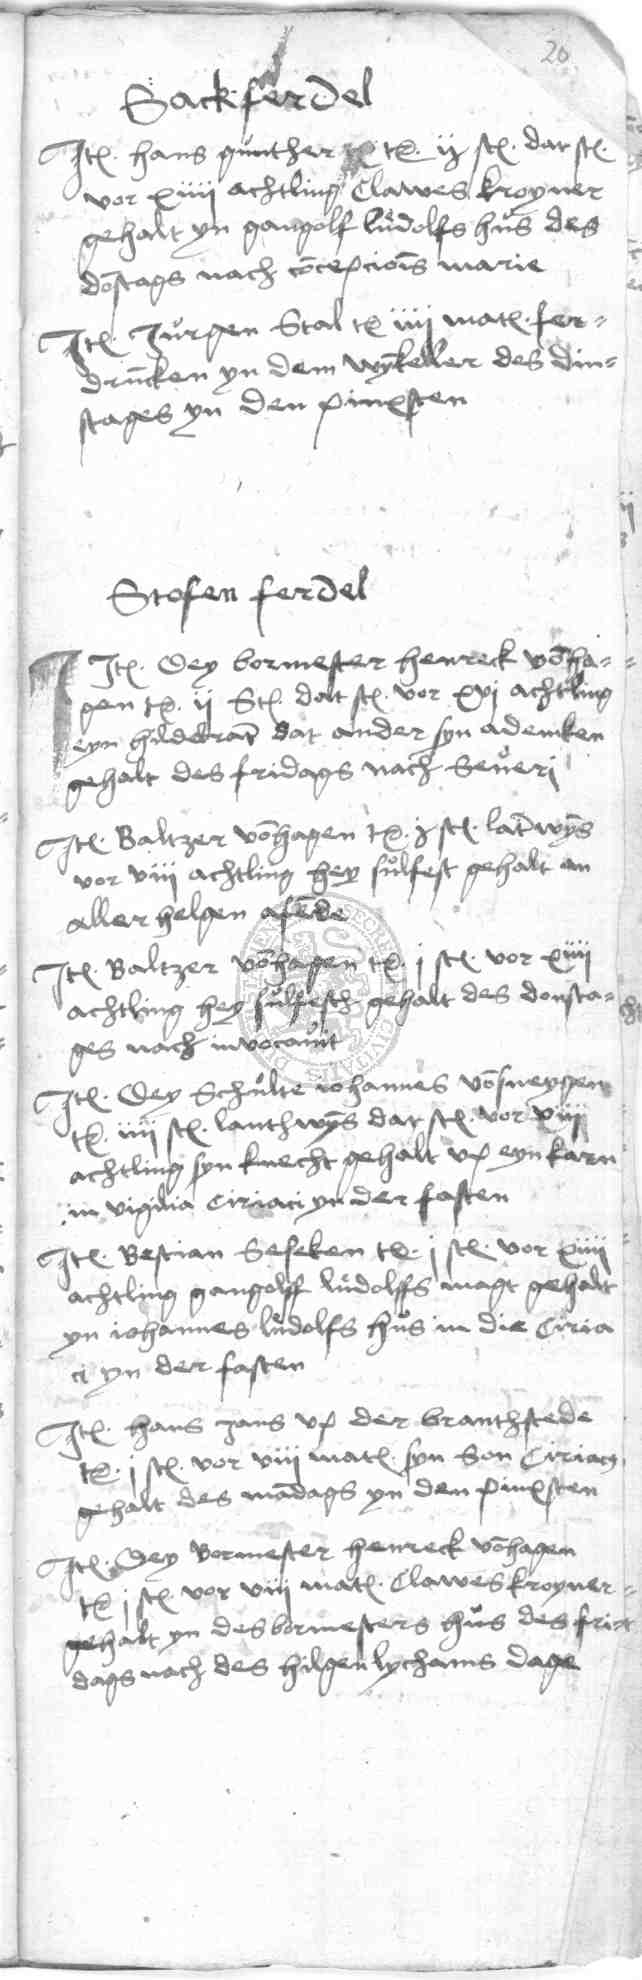 20
Sackferdel
Itẽ. hans gunther tẽ. ij stẽ. dat stẽ.
vor xiiij achtling Clawes kroyner
gehalt yn gangolf lůdolfs hůs des
dōstags nach cōcepciōis marie
Itẽ. Jůrgen Stal tẽ iiij matẽ. fer=
drūcken yn dem wȳkeller des din=
stages yn den pinxsten
Stofen ferdel
Itẽ. Dey bormester henreck vōha=
gen tẽ. ij Stẽ. dat stẽ. vor xvj achtling
eyn hildebrāt dat ander syn ademken
gehalt des fridags nach Seůeri
Itẽ. Baltzer vōhagen tẽ. j stẽ. lātwȳs
vor viij achtling hey sůlfest gehalt an
aller helgen afēde
Itẽ. Baltzer vōhagen tẽ. j stẽ. vor xiiij
achtling hey sůlfesth gehalt des donsta=
ges nach invocaůit
Itẽ. Dey Schůlte iohannes vōsneygen
tẽ. iiij stẽ. lanthwȳs dat stẽ. vor viij
achtling syn knecht gehalt vp eyn karn
in vigilia Ciriaci yn der fasten
Itẽ. Bestian Seseken tẽ. j stẽ. vor xiiij
achtling gangolff lůdolffs magt gehalt
yn iohannes lůdolfs hůs in die Ciria
ci yn der fasten
Itẽ. hans Jans vp der branthstede
tẽ. j stẽ. vor viij matẽ. syn Son Ciriacꝰ
gehalt des mādags yn den pinxsten
Itẽ. Dey Bormester henreck vōhagen
tẽ j stẽ. vor viij matẽ. Clawes kroyner=
gehalt yn des bormesters hůs des fri=
dags nach des hilgen lychams dage